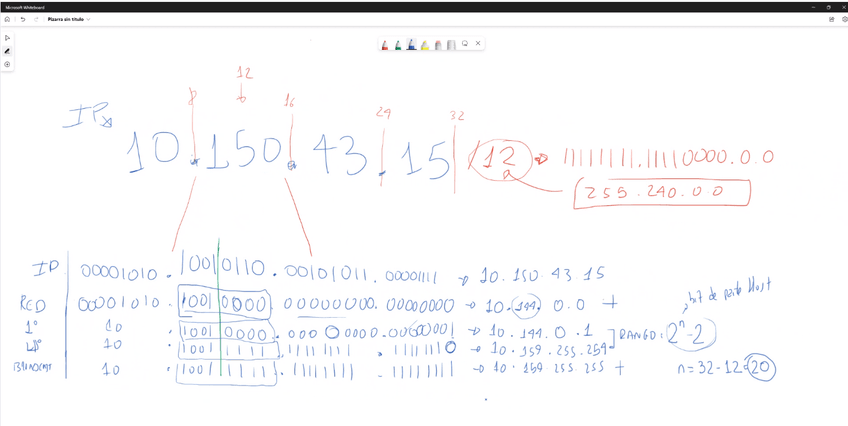 Microsoft Whiteboard
Pizarra sin título
8 12 16 24 32
10.150.43.15 /12 → 11111111.11110000.0.0
255.240.0.0
00001010.10010110.00101011.00001111 → 10.150.43.15
bit de parte Host
RED 00001010.10010000.00000000.00000000 → 10.144.0.0 +
1º 10 .10010000.00000000.00000001 → 10.144.0.1 ] RANGO: 2ⁿ-2
10 .10011111.11111111.11111110 → 10.159.255.254
10 .10011111.11111111.11111111 → 10.159.255.255 + n=32-12=20